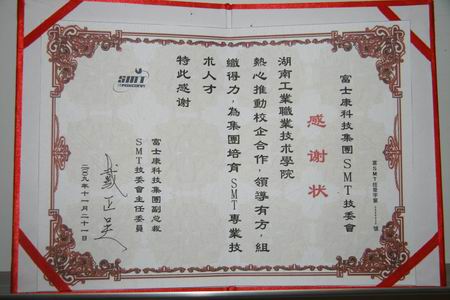 富士康科技集團SMT技委會
感谢状
湖南工業職業技术學院
熱心推動校企合作，領導有方，組
織得力，為集團培育SMT專業技
术人才
特此感谢
SMT
FOXCONN
富士康科技集團副总裁
SMT技委會主任委員
戴正吴
二00九年十一月二十一日